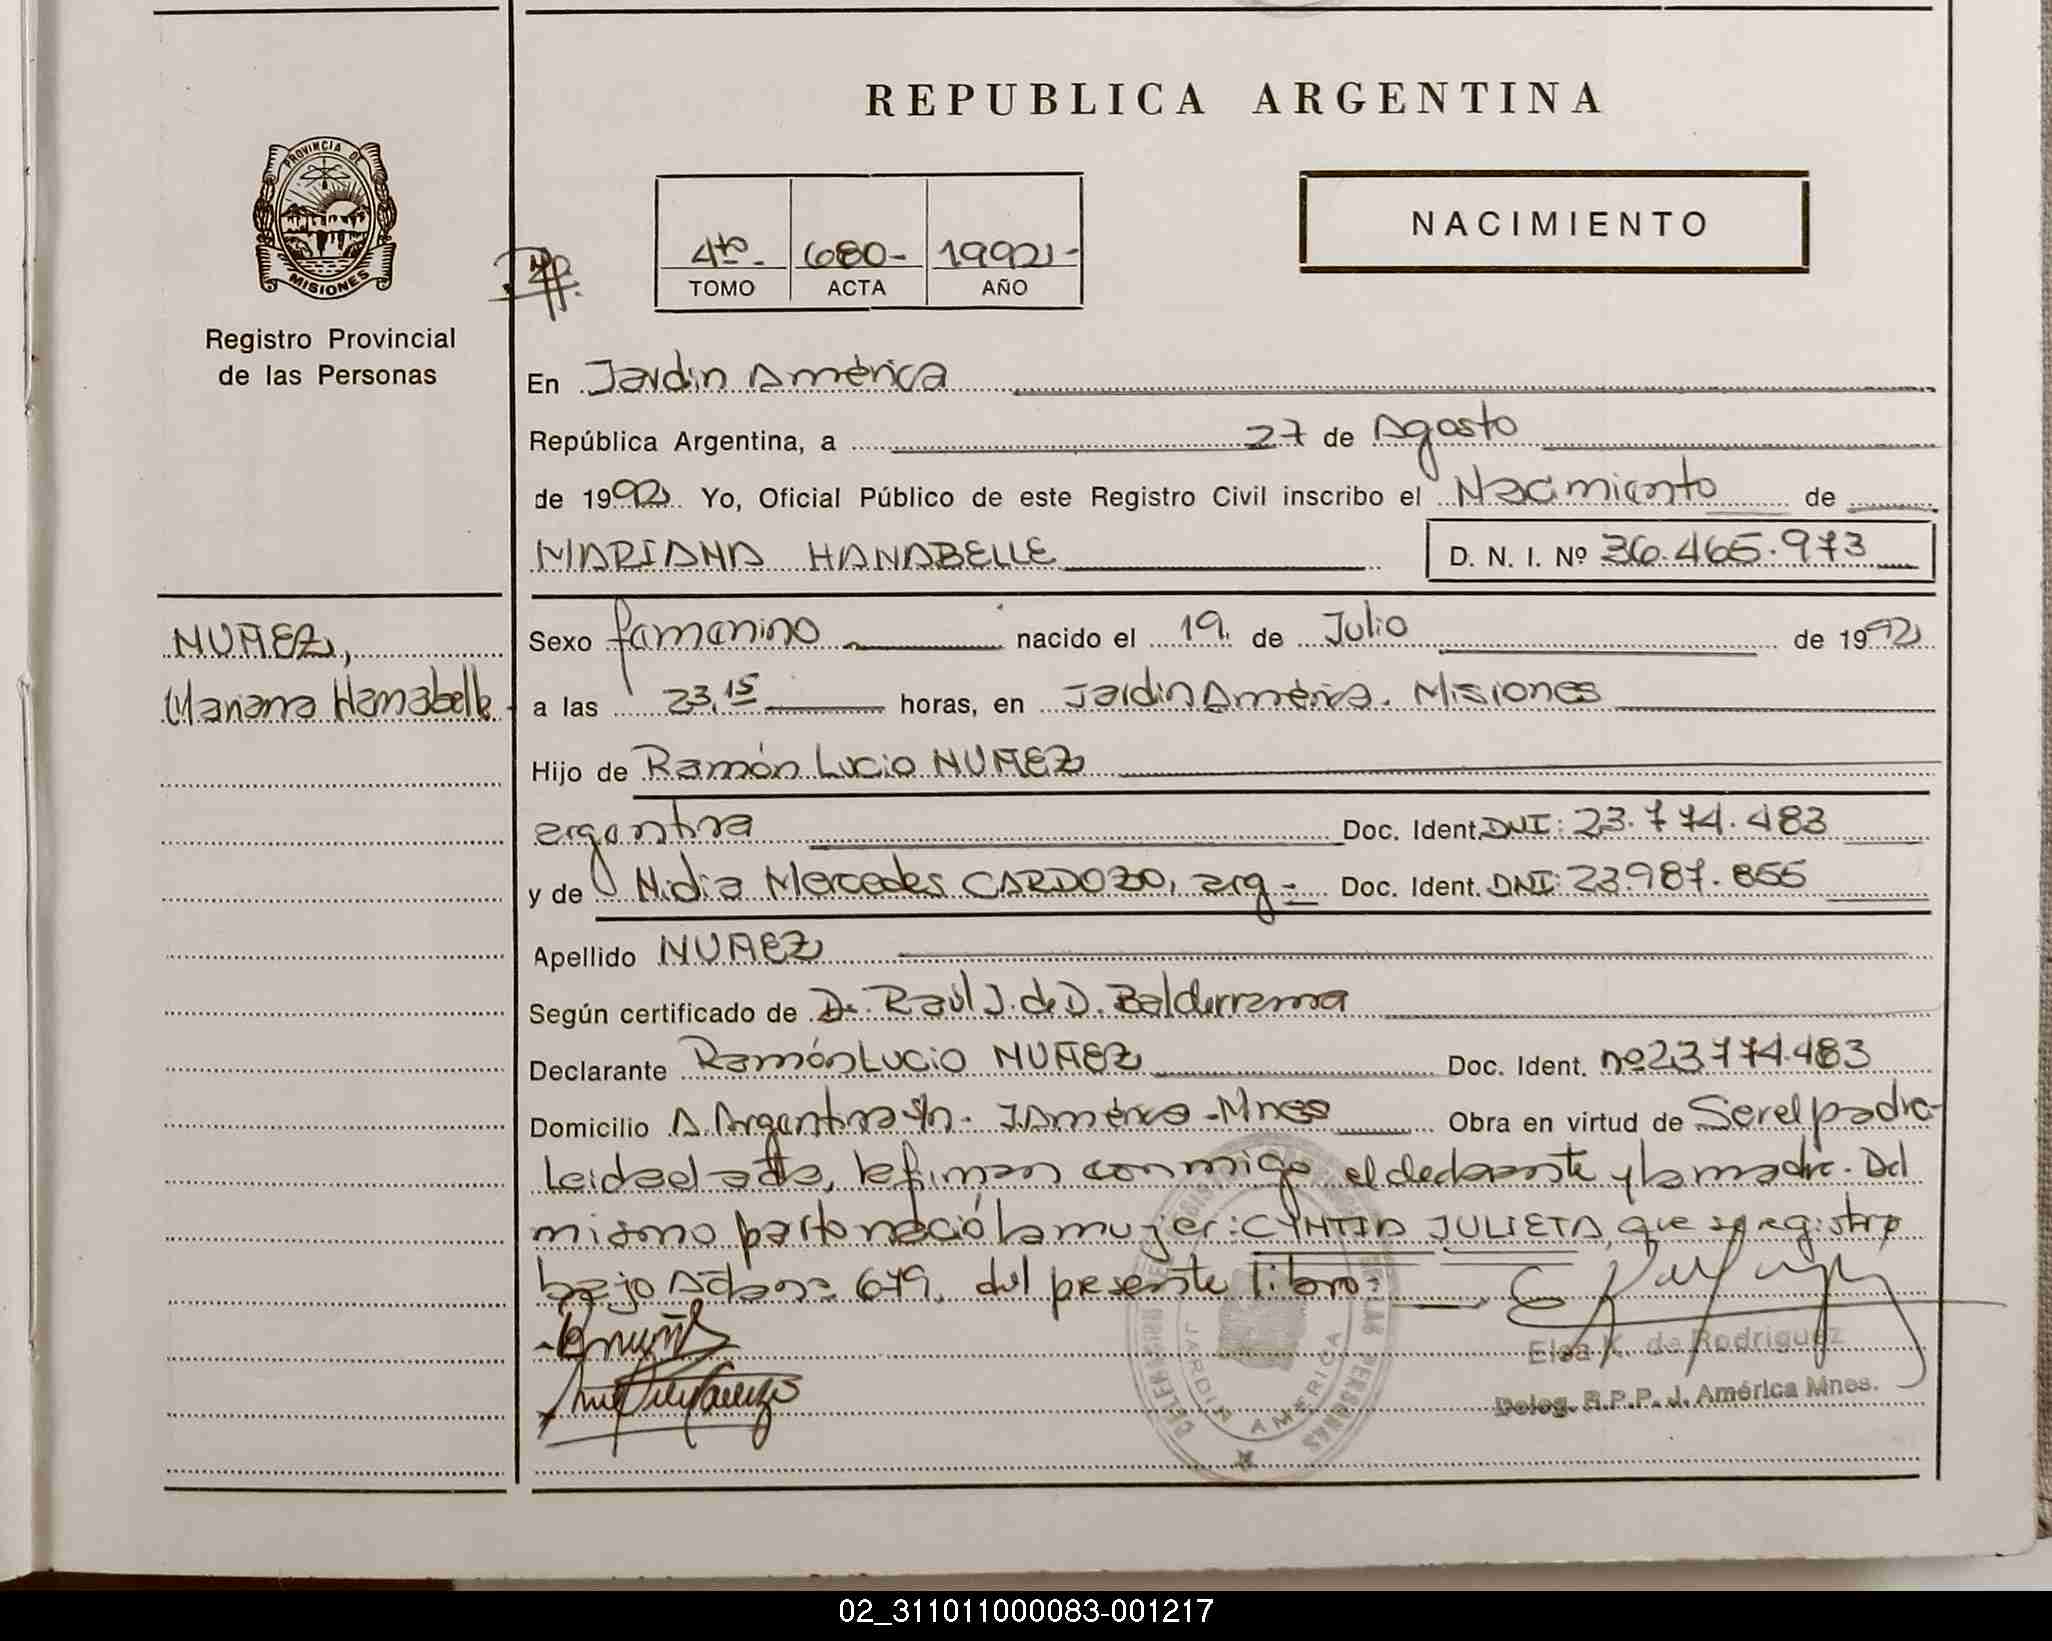 REPUBLICA ARGENTINA
PROVINCIA DE
MISIONES
Registro Provincial
de las Personas
4to.- 680- 1992-
TOMO ACTA AÑO
NACIMIENTO
En Jardin América
República Argentina, a 27 de Agosto
de 1992 Yo, Oficial Público de este Registro Civil inscribo el Nacimiento de
MARIANA HANABELLE D. N. I. Nº 36.465.973
NUÑEZ,
Mariana Hanabelle
Sexo femenino nacido el 19. de Julio de 1992
a las 23,15 horas, en Jardin América. Misiones
Hijo de Ramón Lucio NUÑEZ
argentina Doc. Ident. DNI: 23.774.483
y de Nidia Mercedes CARDOZO, arg- Doc. Ident. DNI: 23.987.855
Apellido NUÑEZ
Según certificado de Dr. Raúl J. de D. Balderrama
Declarante Ramón Lucio NUÑEZ Doc. Ident. nº 23.774.483
Domicilio A. Argentina s/n. J. América - Mnes Obra en virtud de Ser el padre-
Leida el acta, la firman conmigo el declarante y la madre. Del
mismo parto nació la mujer: CYNTIA JULIETA, que se registró
bajo Acta nº 679, del presente libro.-
Elsa K. de Rodriguez
Deleg. R.P.P. J. América Mnes.
JARDIN AMERICA
02_311011000083-001217